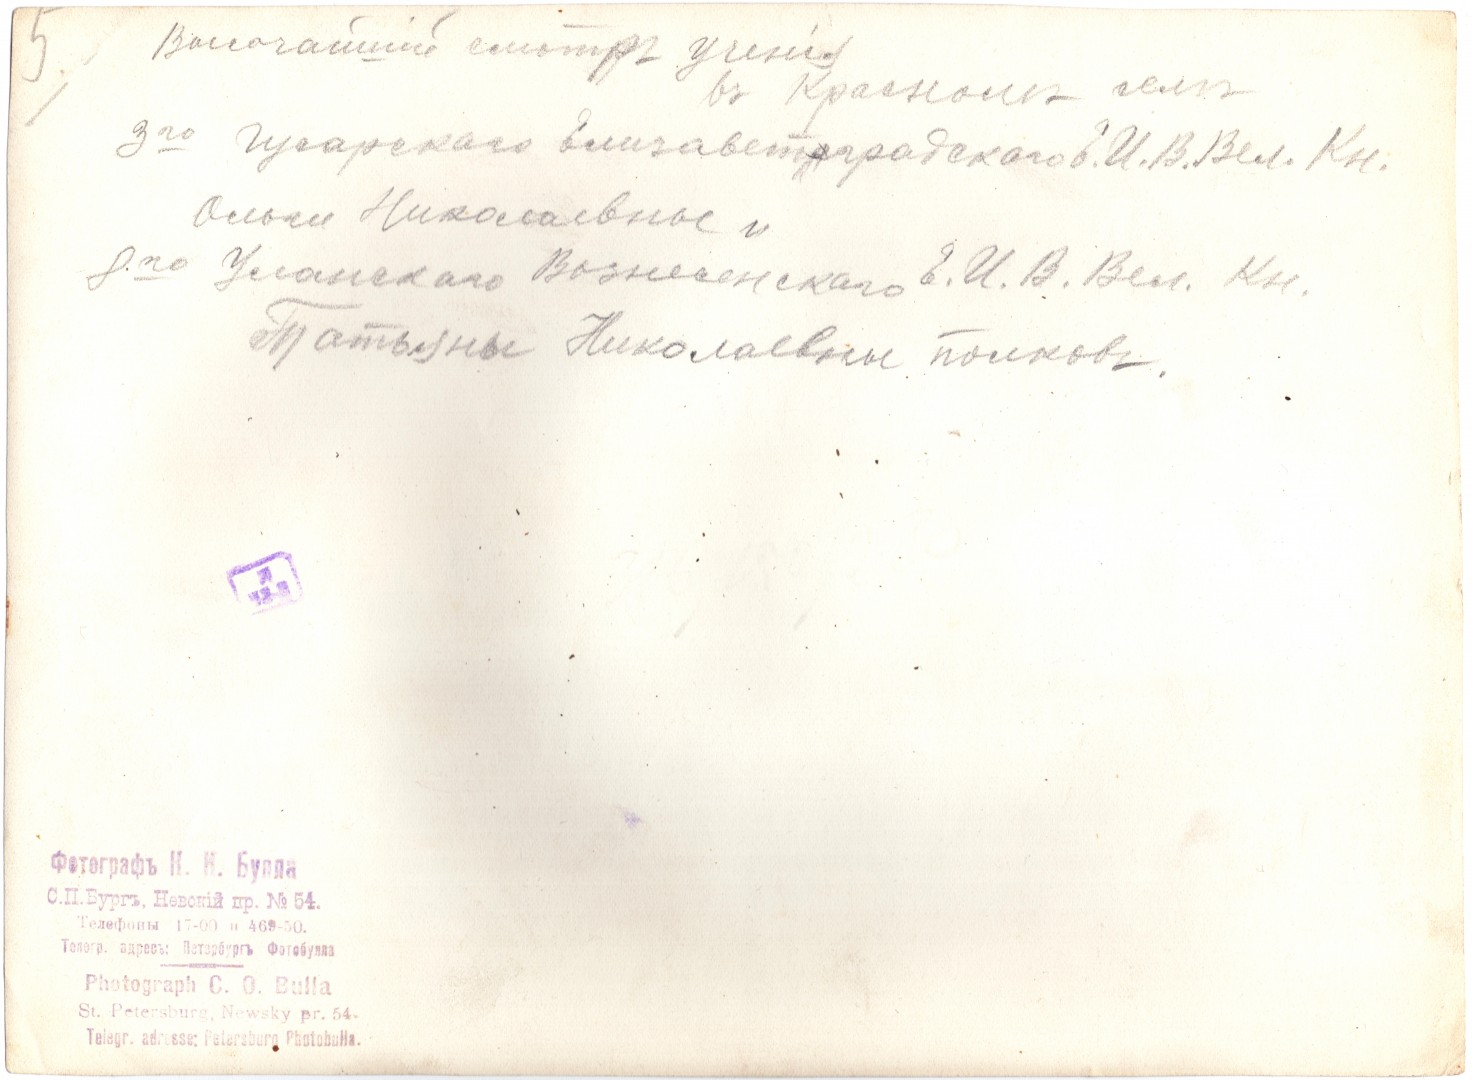 5
Высочайшій смотръ ученія
въ Красномъ селѣ
3го гусарскаго Елизаветградскаго Е.И.В.Вел. Кн.
Ольги Николаевны и
8.го Уланскаго Вознесенскаго Е.И.В.Вел. Кн.
Татьяны Николаевны полковъ.
Фотографъ К. К. Булла
С.П.Бургъ, Невскій пр. № 54.
Телефоны 17-00 и 469-50.
Телегр. адресъ: Петербургъ Фотобулла
Photograph C. O. Bulla
St. Petersburg, Newsky pr. 54.
Telegr. adresse: Petersburg Photobulla.